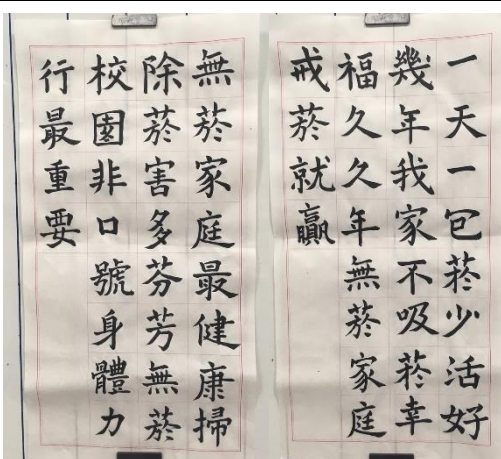 一天一包菸少活好
幾年我家不吸菸幸
福久久年無菸家庭
戒菸就贏
無菸家庭最健康掃
除菸害多芬芳無菸
校園非口號身體力
行最重要